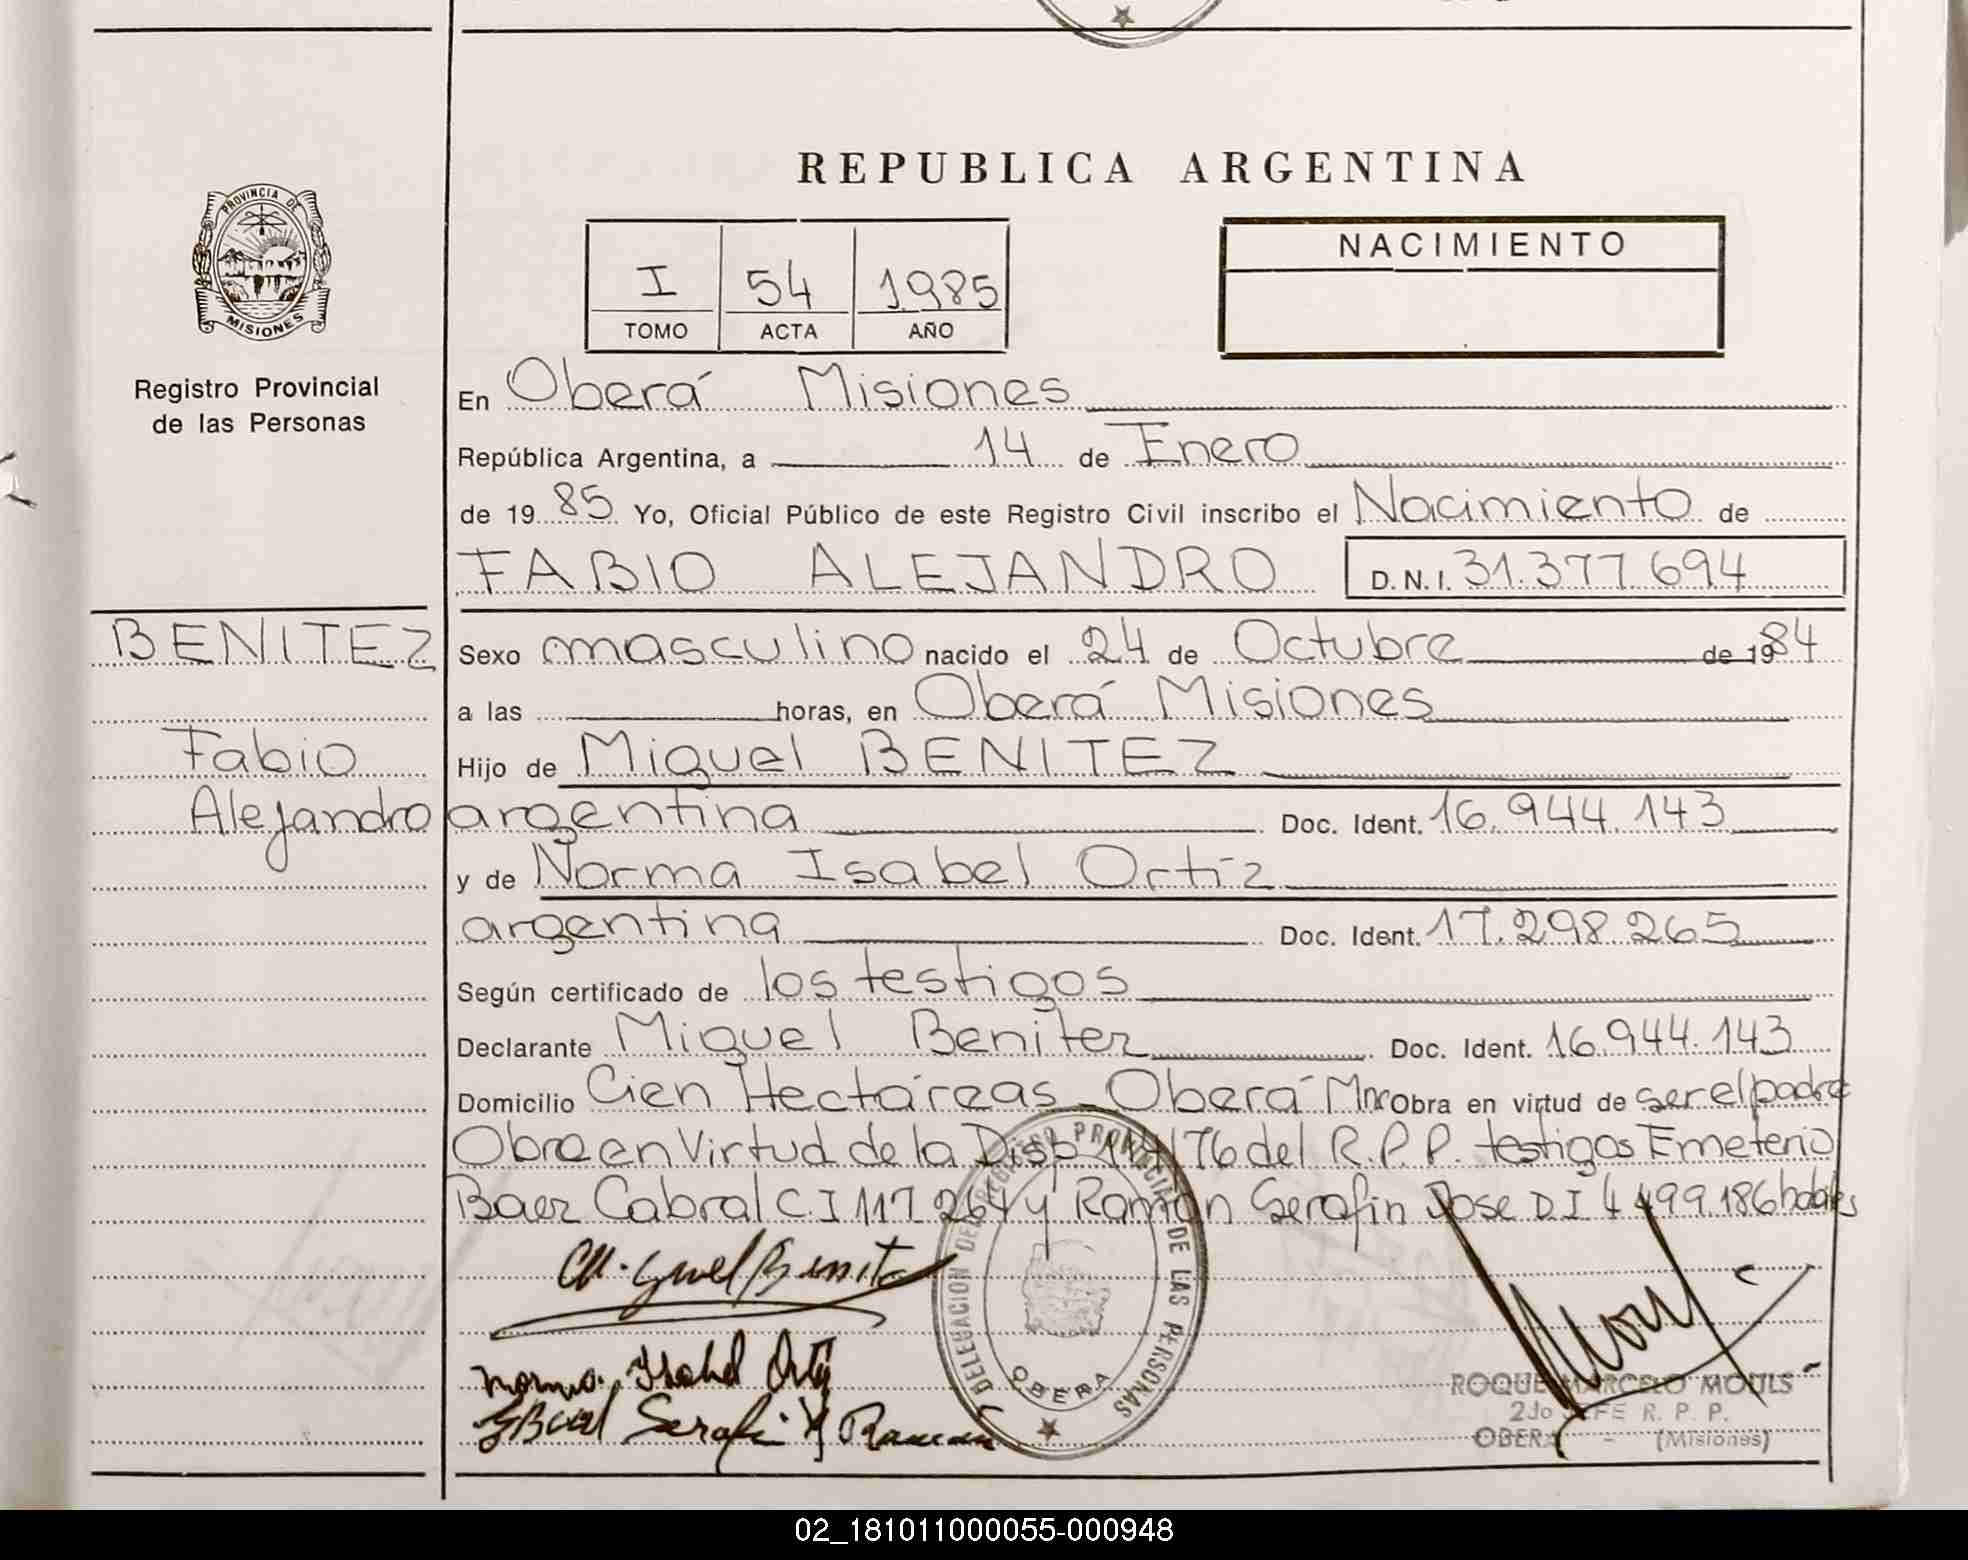 REPUBLICA ARGENTINA
PROVINCIA DE
MISIONES
Registro Provincial
de las Personas
I 54 1985
TOMO ACTA AÑO
NACIMIENTO
En Oberá Misiones
República Argentina, a 14 de Enero
de 19 85 Yo, Oficial Público de este Registro Civil inscribo el Nacimiento de
FABIO ALEJANDRO D.N.I. 31.377.694
BENITEZ
Fabio
Alejandro
Sexo masculino nacido el 24 de Octubre de 1984
a las horas, en Oberá Misiones
Hijo de Miguel BENITEZ
argentina Doc. Ident. 16.944.143
y de Norma Isabel Ortíz
argentina Doc. Ident. 17.298.265
Según certificado de los testigos
Declarante Miguel Benitez Doc. Ident. 16.944.143
Domicilio Cien Hectáreas Oberá Mnes Obra en virtud de ser el padre
Obra en Virtud de la Disp 144/76 del R.P.P. testigos Emeterio
Baez Cabral C.I 117 264 y Ramón Serafin Jose D.I 4 499.186 habiles
Miguel Benitez
Norma Isabel Ortiz
Serafin Ramon
DELEGACION DEL REGISTRO PROVINCIAL DE LAS PERSONAS
OBERA
ROQUE MARCELO MOULS
2do JEFE R. P. P.
OBERA - (Misiones)
02_181011000055-000948